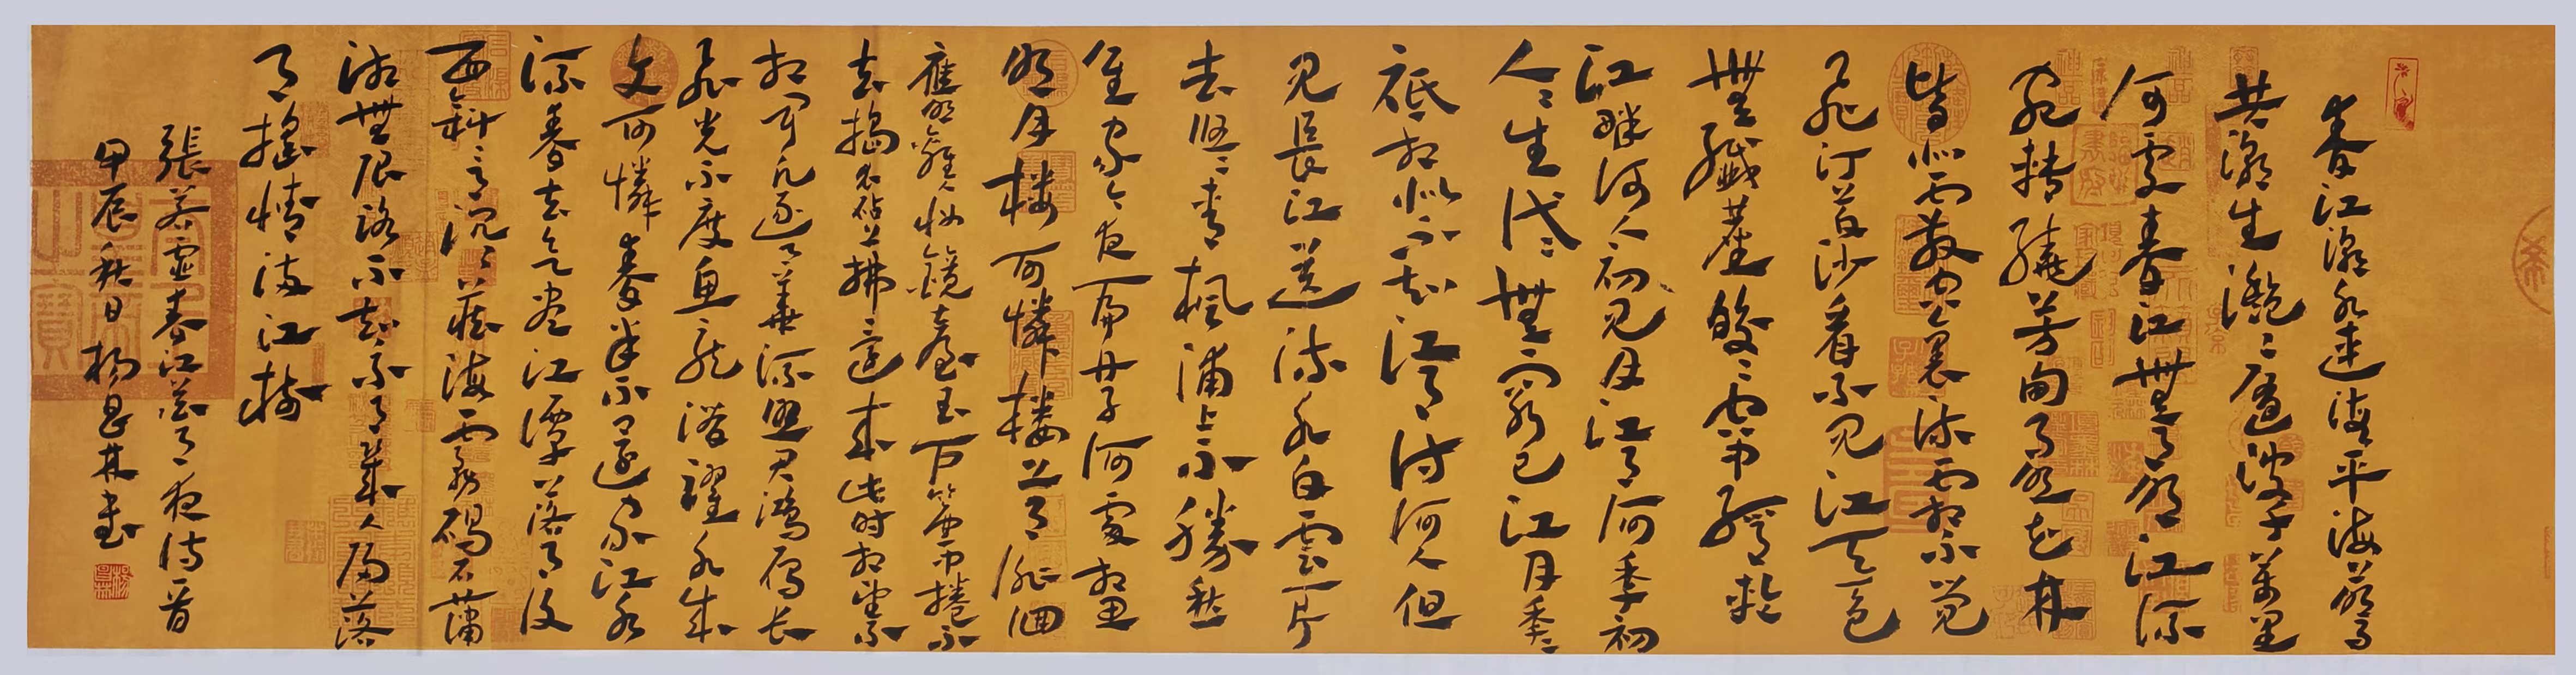 春江潮水連海平海上明月
共潮生灩灩隨波千萬里
何處春江無月明江流
宛轉繞芳甸月照花林
皆似霰空裏流霜不覺
飛汀上白沙看不見江天一色
無纖塵皎皎空中孤月輪
江畔何人初見月江月何年初
人人生代代無窮已江月年年
祗相似不知江月待何人但
見長江送流水白雲一片
去悠悠青楓浦上不勝愁
誰家今夜扁舟子何處相思
明月樓可憐樓上月徘徊
應照離人妝鏡臺玉戶簾中捲不
去搗衣砧上拂還來此時相望不
相聞願逐月華流照君鴻雁長
飛光不度魚龍潛躍水成
文可憐春半不還家江水
流春去欲盡江潭落月復
西斜斜月沉沉藏海霧碣石瀟
湘無限路不知乘月幾人歸落
月搖情滿江樹
張若虛春江花月夜詩一首
甲辰秋日楊昌林書